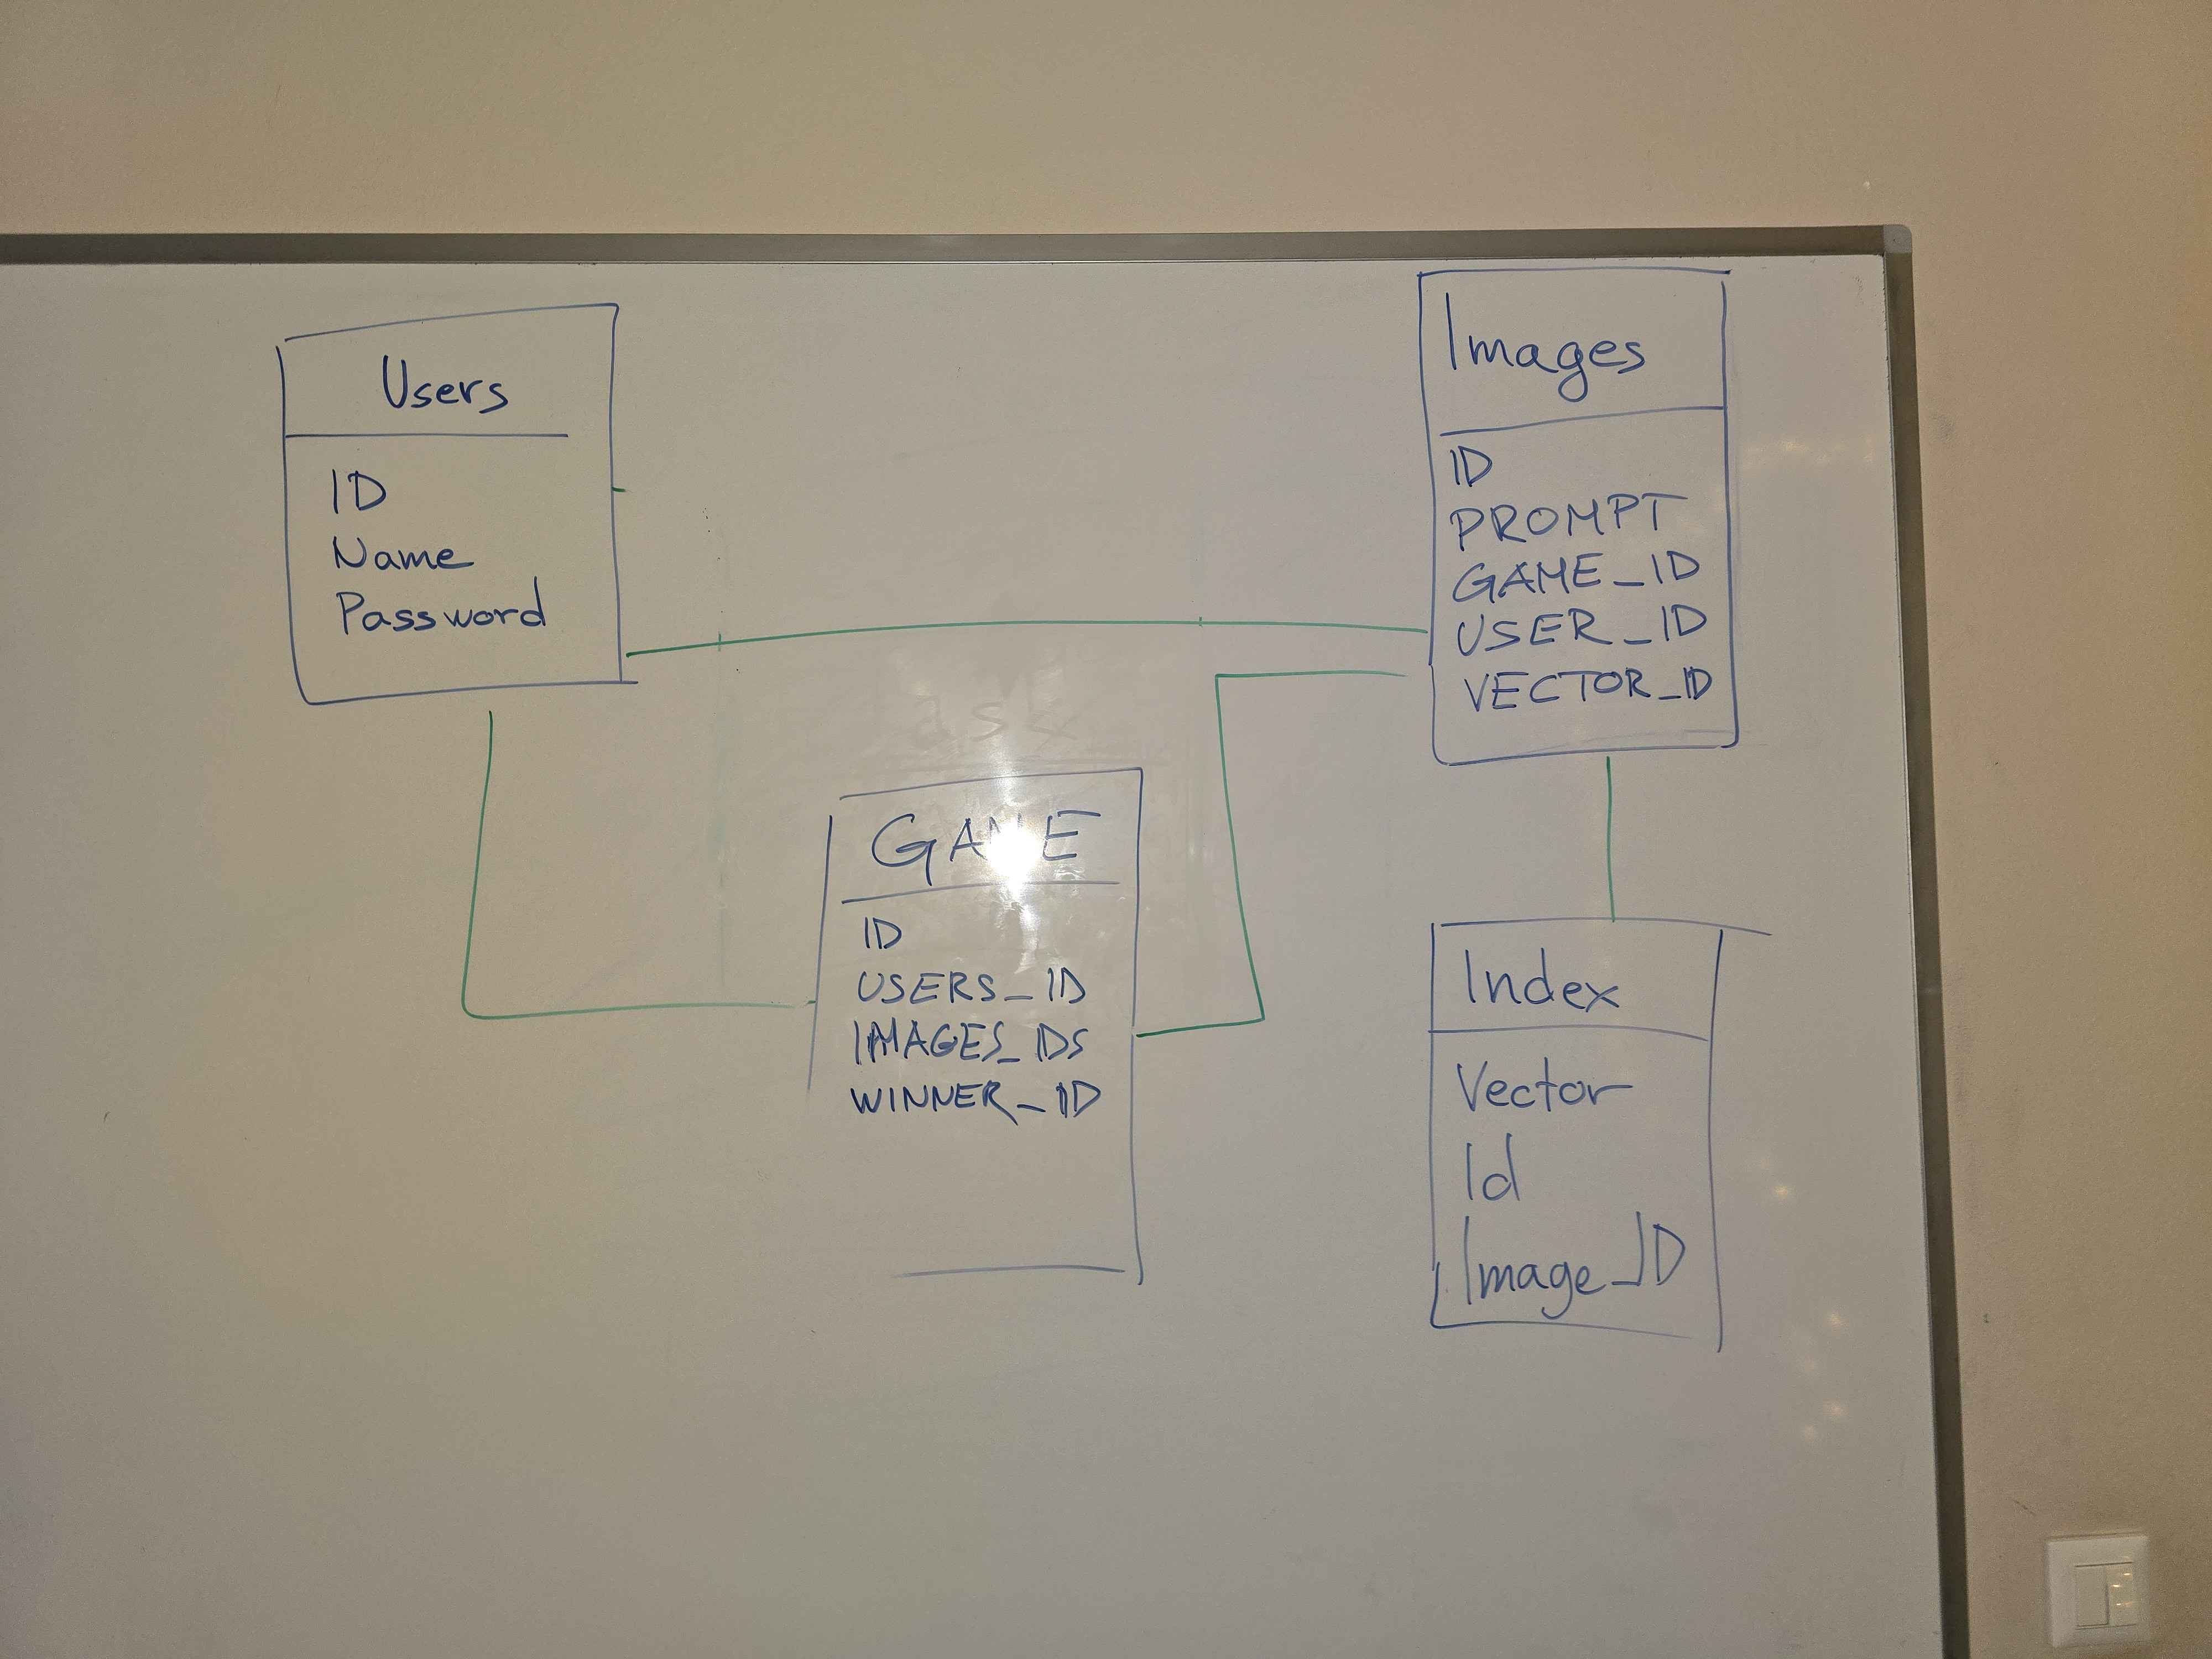 Users
ID
Name
Password
Images
ID
PROMPT
GAME_ID
USER_ID
VECTOR_ID
GAME
ID
USERS_ID
IMAGES_IDS
WINNER_ID
Index
Vector
Id
Image_ID